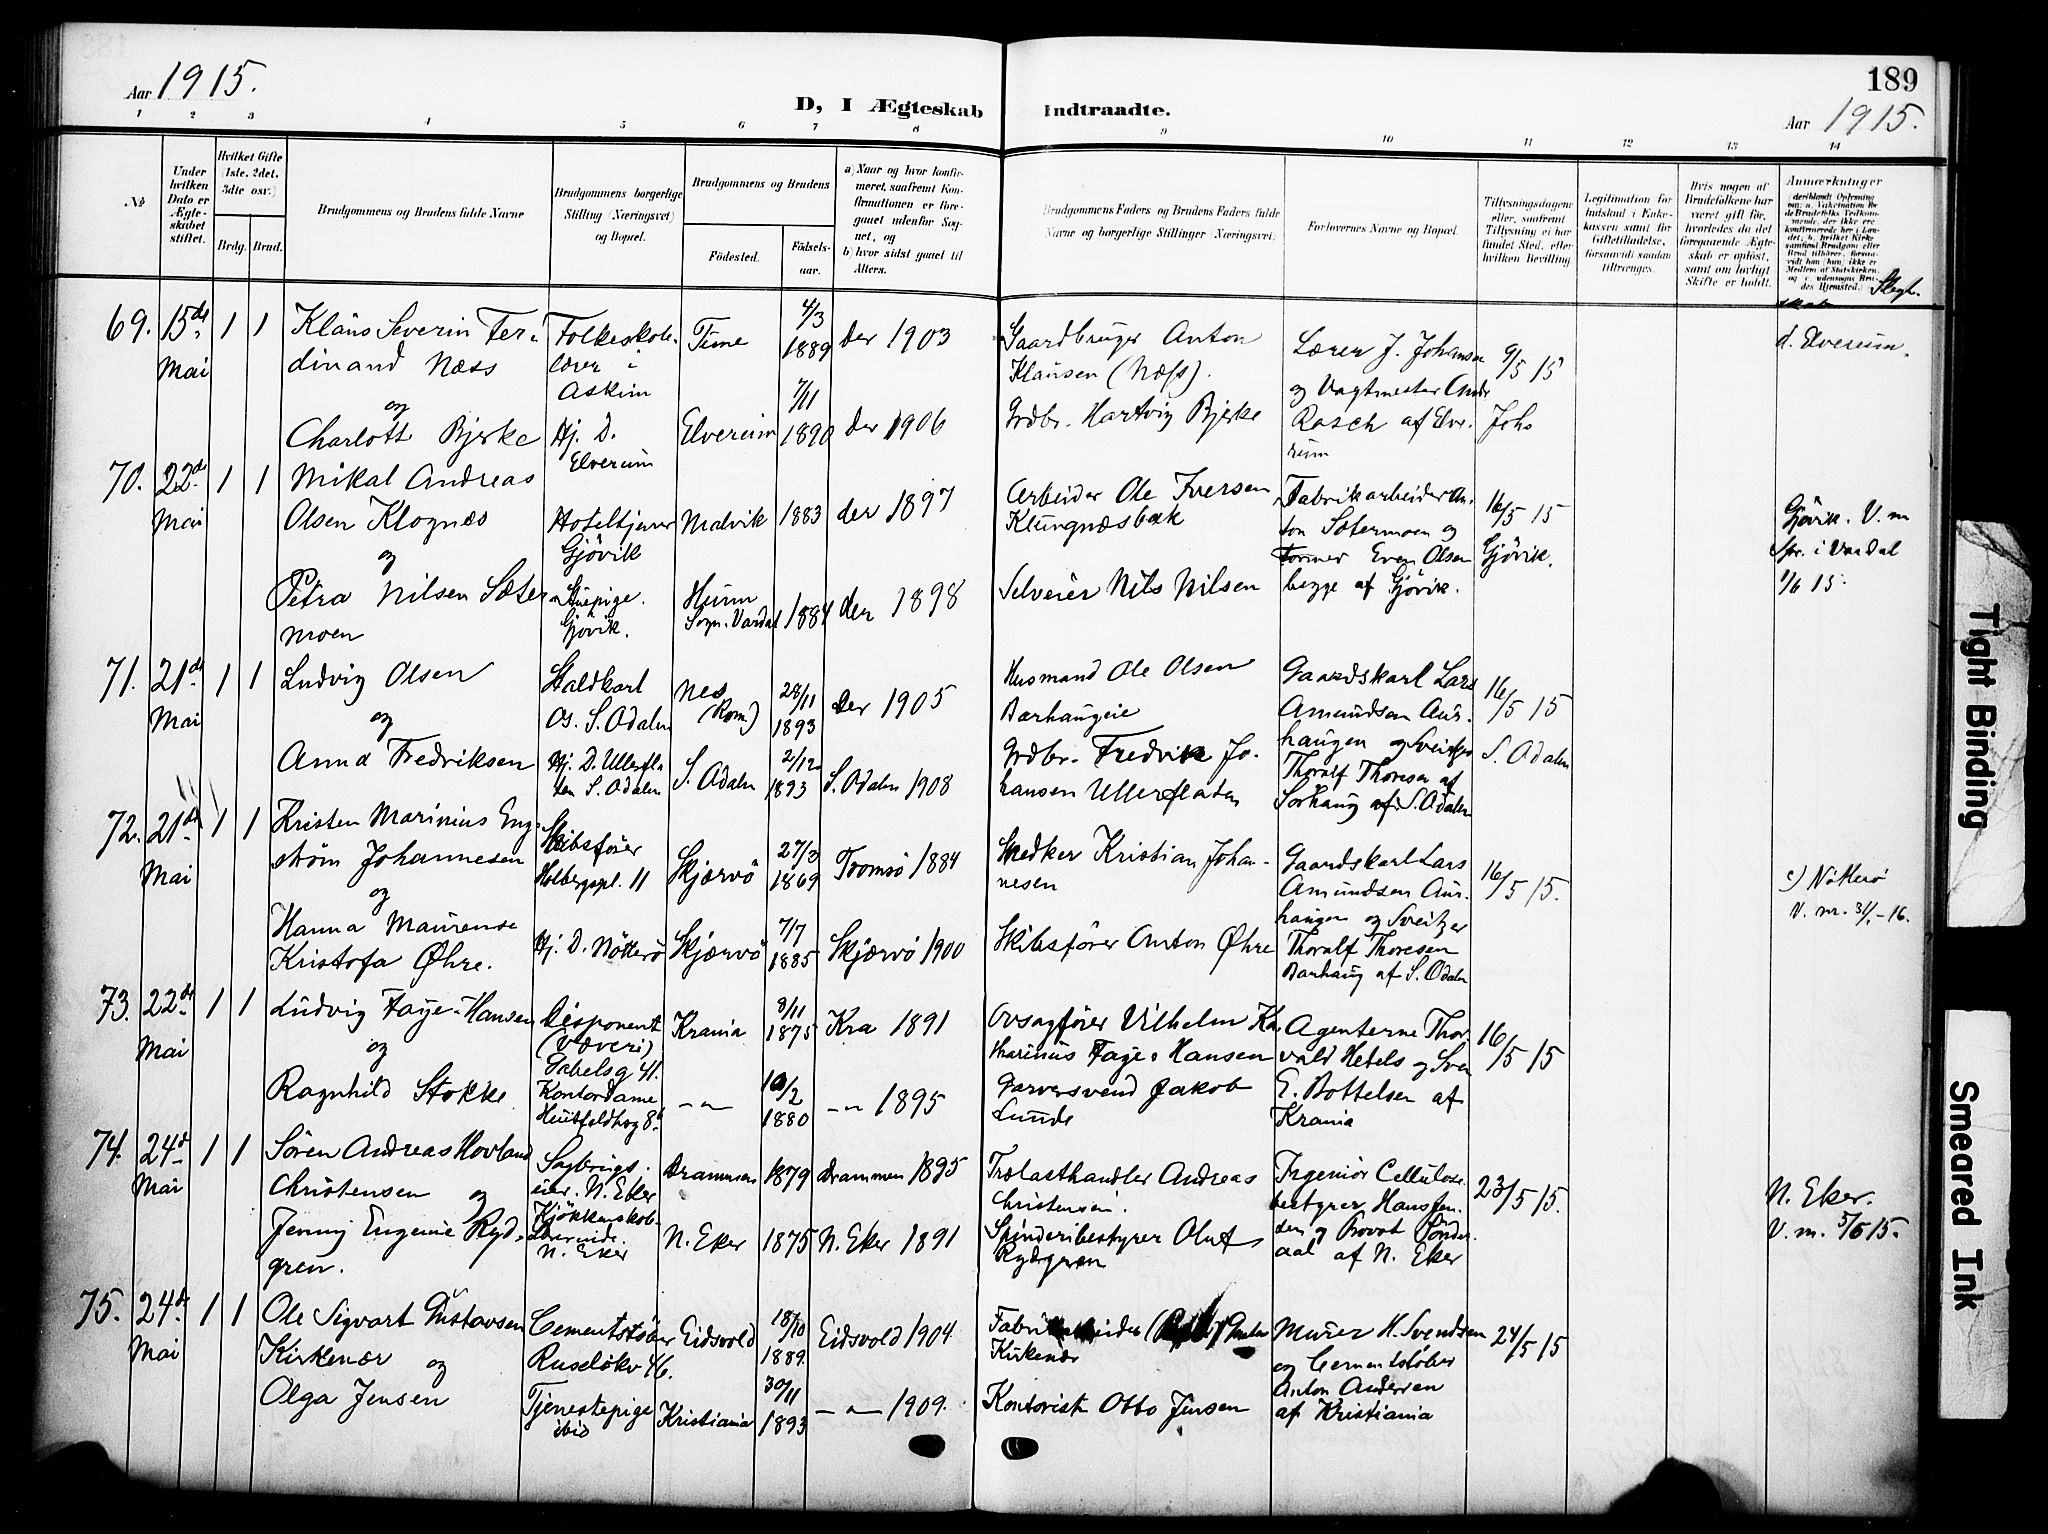 189
Aar 1915.
D, I Ægteskab Indtraadte.
Aar 1915.
1 2 3 4 5 6 7 8 9 10 11 12 13 14
No
Under hvilken Dato er Ægteskabet stiftet.
Hvilket Gifte (1ste, 2det, 3die osv.)
Brdg. Brud.
Brudgommens og Brudens fulde Navne
Brudgommens borgerlige Stilling (Næringsvei) og Bopæl.
Brudgommens og Brudens
Fødested.
Fødselsaar.
a) Naar og hvor konfirmeret, saafremt Konfirmationen er foregaaet udenfor Sognet, og
b) hvor sidst gaaet til Alters.
Brudgommens Faders og Brudens Faders fulde Navne og borgerlige Stillinger (Næringsvei)
Forlovernes Navne og Bopæl.
Tillysningsdagene eller, saafremt Tillysning ei har fundet Sted, efter hvilken Bevilling
Legitimation for Indskud i Enkekassen samt for Giftetilladelse, forsaavidt saadan tiltrænges.
Hvis nogen af Brudefolkene har været gift før, hvorledes da det foregaaende Ægteskab er opløst, samt om lovligt Skifte er holdt.
Anmærkninger
69. 15de Mai 1 1
Klaus Severin Ferdinand Næss
og
Charlott Bjerke
Folkeskolelærer i Askim
Hj. D. Elverum
Time 4/3 1889 der 1903
Elverum 7/11 1890 der 1906
Gaardbruger Anton Klausen (Næss).
Grdbr. Hartvig Bjerke
Lærer J. Johansen og Vagtmester Andr Rasch af Elverum
9/5 15
Johs
d. Elverum.
70. 22de Mai 1 1
Mikal Andreas Olsen Klognæs
og
Petra Nilsen Sætermoen
Hoteltjener Gjövik
Stuepige. Gjövik.
Malvik 1883 der 1897
Hunn Sogn. Vardal 1884 der 1898
Arbeider Ole Iversen Klungnæsbak
Selveier Nils Nilsen
Fabrikarbeider Anton Sætermoen og Former Even Olsen begge af Gjövik.
16/5 15
Gjövik.
Gjövik. V. m
Spr. i Vardal
1/6 15.
71. 21de Mai 1 1
Ludvig Olsen
og
Anna Fredriksen
Staldkarl Os. S. Odalen
Hj. D. Ullerflaten S. Odalen
Nes (Rom.) 28/11 1893 der 1905
S. Odalen 2/12 1893 S. Odalen 1908
Husmand Ole Olsen Barhaugeie
Grdbr. Fredrik Johansen Ullerflaten
Gaardskarl Lars Amundsen Aurhaugen og Sveitzer Thoralf Thoresen af Sorhaug af S. Odalen
16/5 15
S. Odalen
72. 21de Mai 1 1
Kristen Marinius Engström Johannesen
og
Hanna Maurense Kristofa Øhre.
Skibsfører Holbergspl. 11
Hj. D. Nötterö
Skjærvö 27/3 1869 Tromsö 1884
Skjærvö 7/7 1885 Skjærvö 1900
Snedker Kristian Johannesen
Skibsfører Anton Øhre
Gaardskarl Lars Amundsen Aurhaugen og Sveitzer Thoralf Thoresen Barhaug af S. Odalen
16/5 15.
c) Nötterö
V. m. 31/1-16.
73. 22de Mai 1 1
Ludvig Faye-Hansen
og
Ragnhild Stokke
Disponent (Væveri) Gabelsg 41.
Kontordame Huitfeldtsg 8b
Krania 8/11 1875 Kra 1891
-"- 10/2 1880 -"- 1895
Ovsagfører Vilhelm Katharinus Faye-Hansen
Garversvend Jakob Lunde
Agenterne Thorvald Hetels og Sven E. Bottelsen af Krania
16/5 15
74. 24de Mai 1 1
Sören Andreas Hovland Christensen
og
Jenny Eugenie Rydgren.
Sagbrugseier. N. Eker
Kjökkenskolebestyrerinde. N. Eker
Drammen 1879 Drammen 1895
N. Eker 1875 N. Eker 1891
Trælasthandler Andreas Christensen.
Spinderibestyrer Oluf Rydgren
Ingeniör Cellulosebestyrer Hans og Provst Sönderaal af N. Eker
23/5 15.
N. Eker.
V. m. 5/6 15.
75. 24de Mai 1 1
Ole Sigvart Gustavsen Kirkenær
og
Olga Jensen
Cementstöber Ruselökv 46.
Tjenestepige ibid
Eidsvold 18/10 1889. Eidsvold 1904
Kristiania 30/11 1893 -"- 1909.
Fabrikarbeider Kirkenær
Kontorist Otto Jensen
Murer H. Svendsen og Cementstöber Anton Andersen af Kristiania
24/5 15
Tight Binding
Smeared Ink